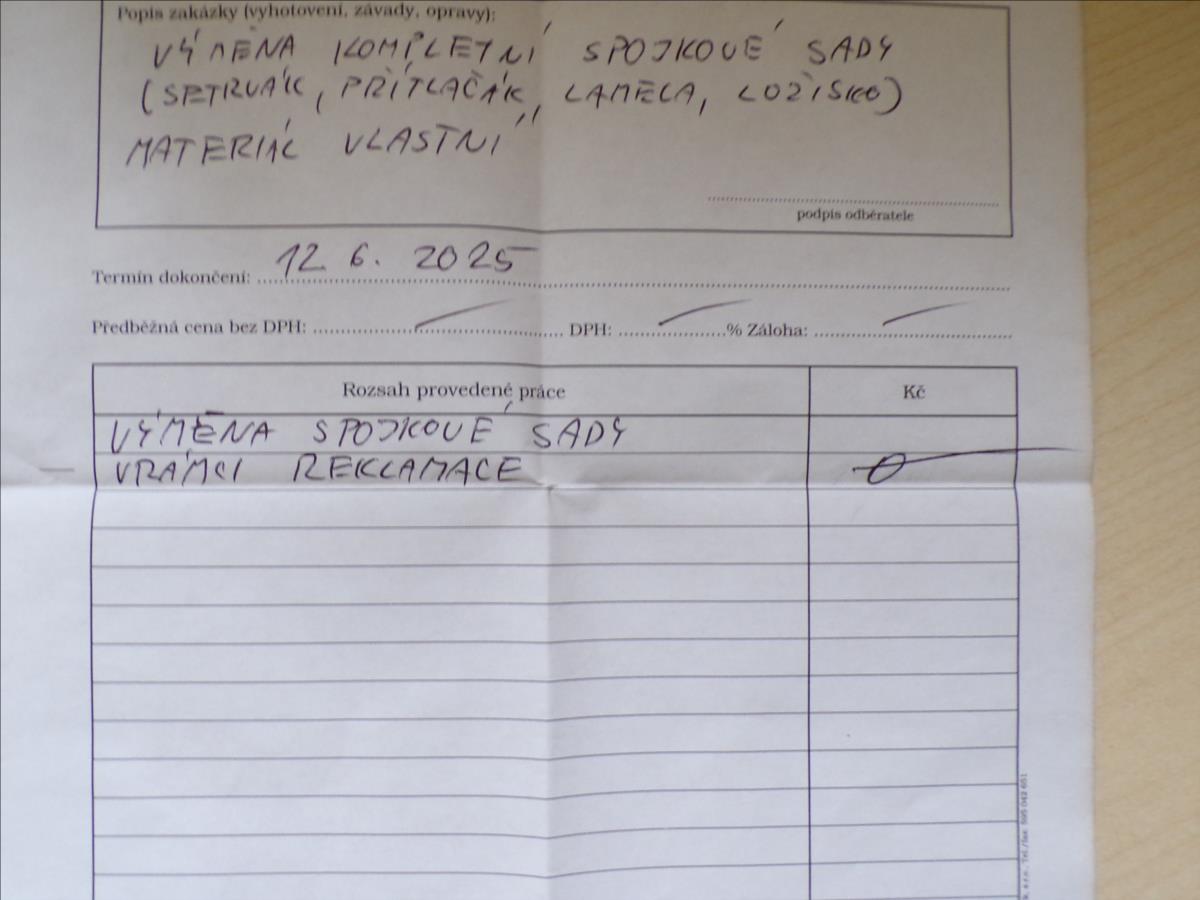 Popis zakázky (vyhotovení, závady, opravy):
VÝMĚNA KOMPLETNÍ SPOJKOVÉ SADY
(SETRVÁK, PŘÍTLAČÁK, LAMELA, LOŽISKO)
MATERIÁL VLASTNÍ
podpis odběratele
Termín dokončení: 12. 6. 2025
Předběžná cena bez DPH: DPH: % Záloha:
Rozsah provedené práce Kč
VÝMĚNA SPOJKOVÉ SADY
V RÁMCI REKLAMACE 0
s.r.o., Tel./fax: 595 042 651